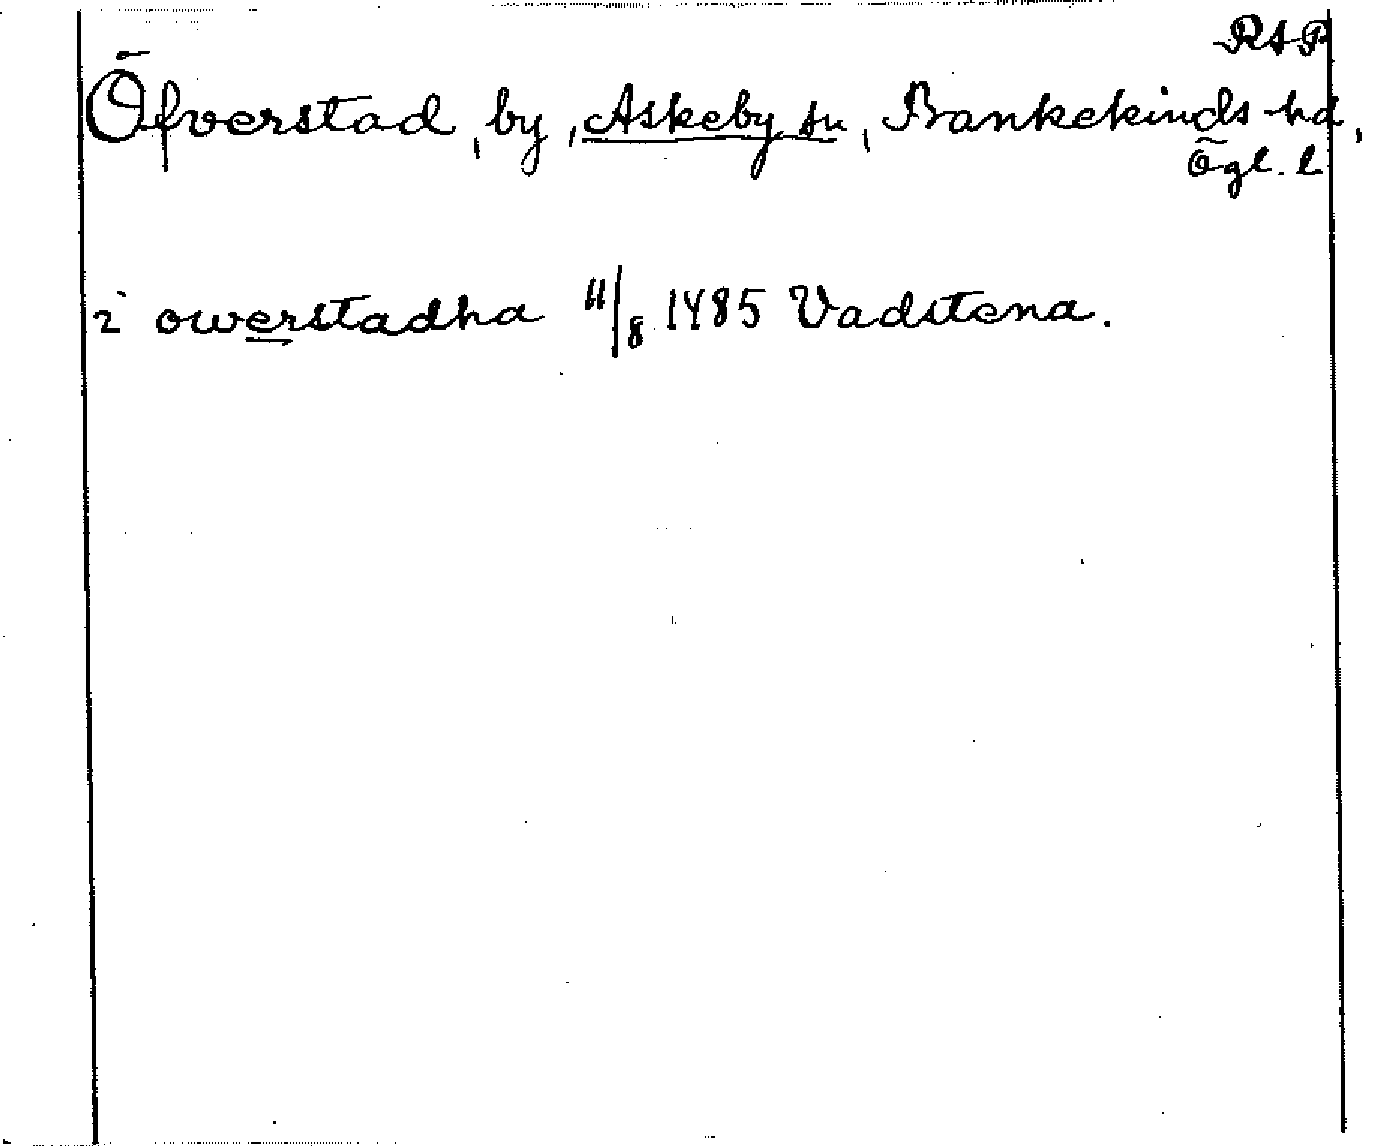 RAP
Öfverstad, by, Askeby sn, Bankekinds hd,
Ögl. l
i owerstadha 11/8 1485 Vadstena.